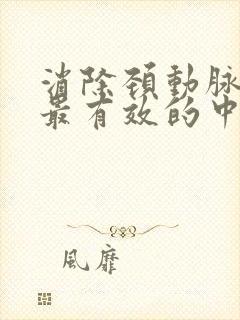 消除頸動脉
最有效的中
風靡